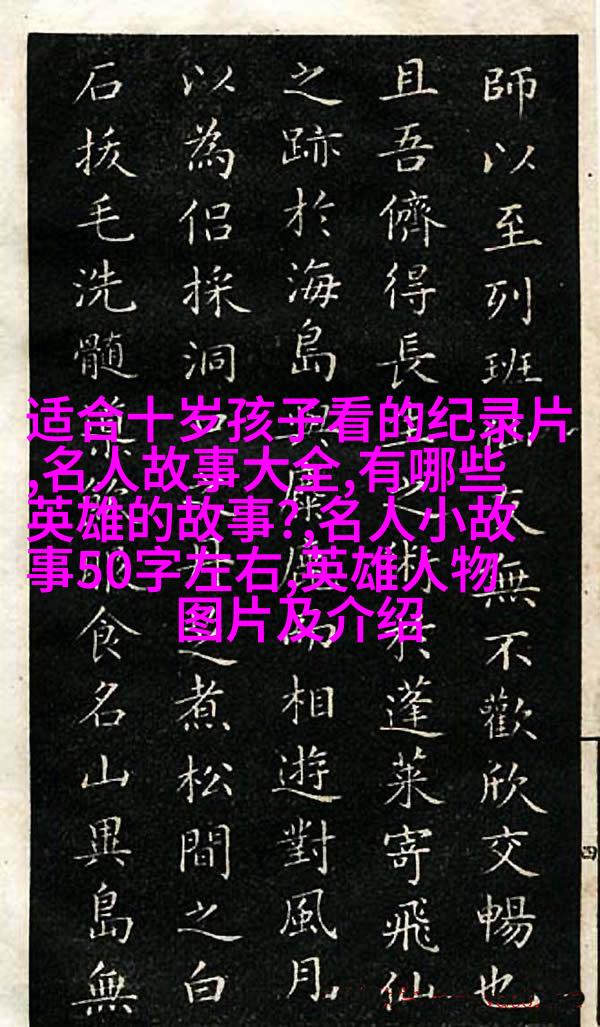 适合十岁孩子看的纪录片
,名人故事大全,有哪些
英雄的故事?,名人小故
事50字左右,英雄人物
图片及介绍
師以至列班友無不歡欣交暢也
且吾儕得長生之術於蓬萊寄飛仙
之跡於海島與而相遊對風月
以為侶採洞之煮松間之白
石拔毛洗髓服食名山異島無